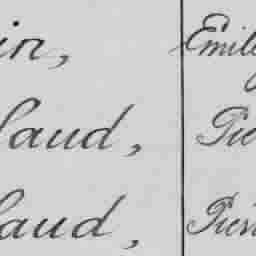 in, Emil
laud, Pie
laud, Pierr